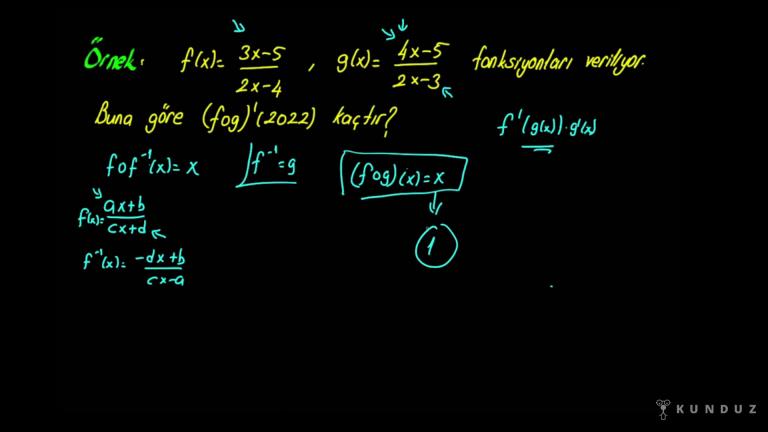 Örnek: f(x)= 3x-5 / 2x-4 , g(x)= 4x-5 / 2x-3 fonksiyonları veriliyor.
Buna göre (fog)'(2022) kaçtır?
f'(g(x)).g'(x)
fof⁻¹(x)= x
f⁻¹=g
(fog)(x)=x
1
f(x)= ax+b / cx+d
f⁻¹(x)= -dx+b / cx-a
KUNDUZ